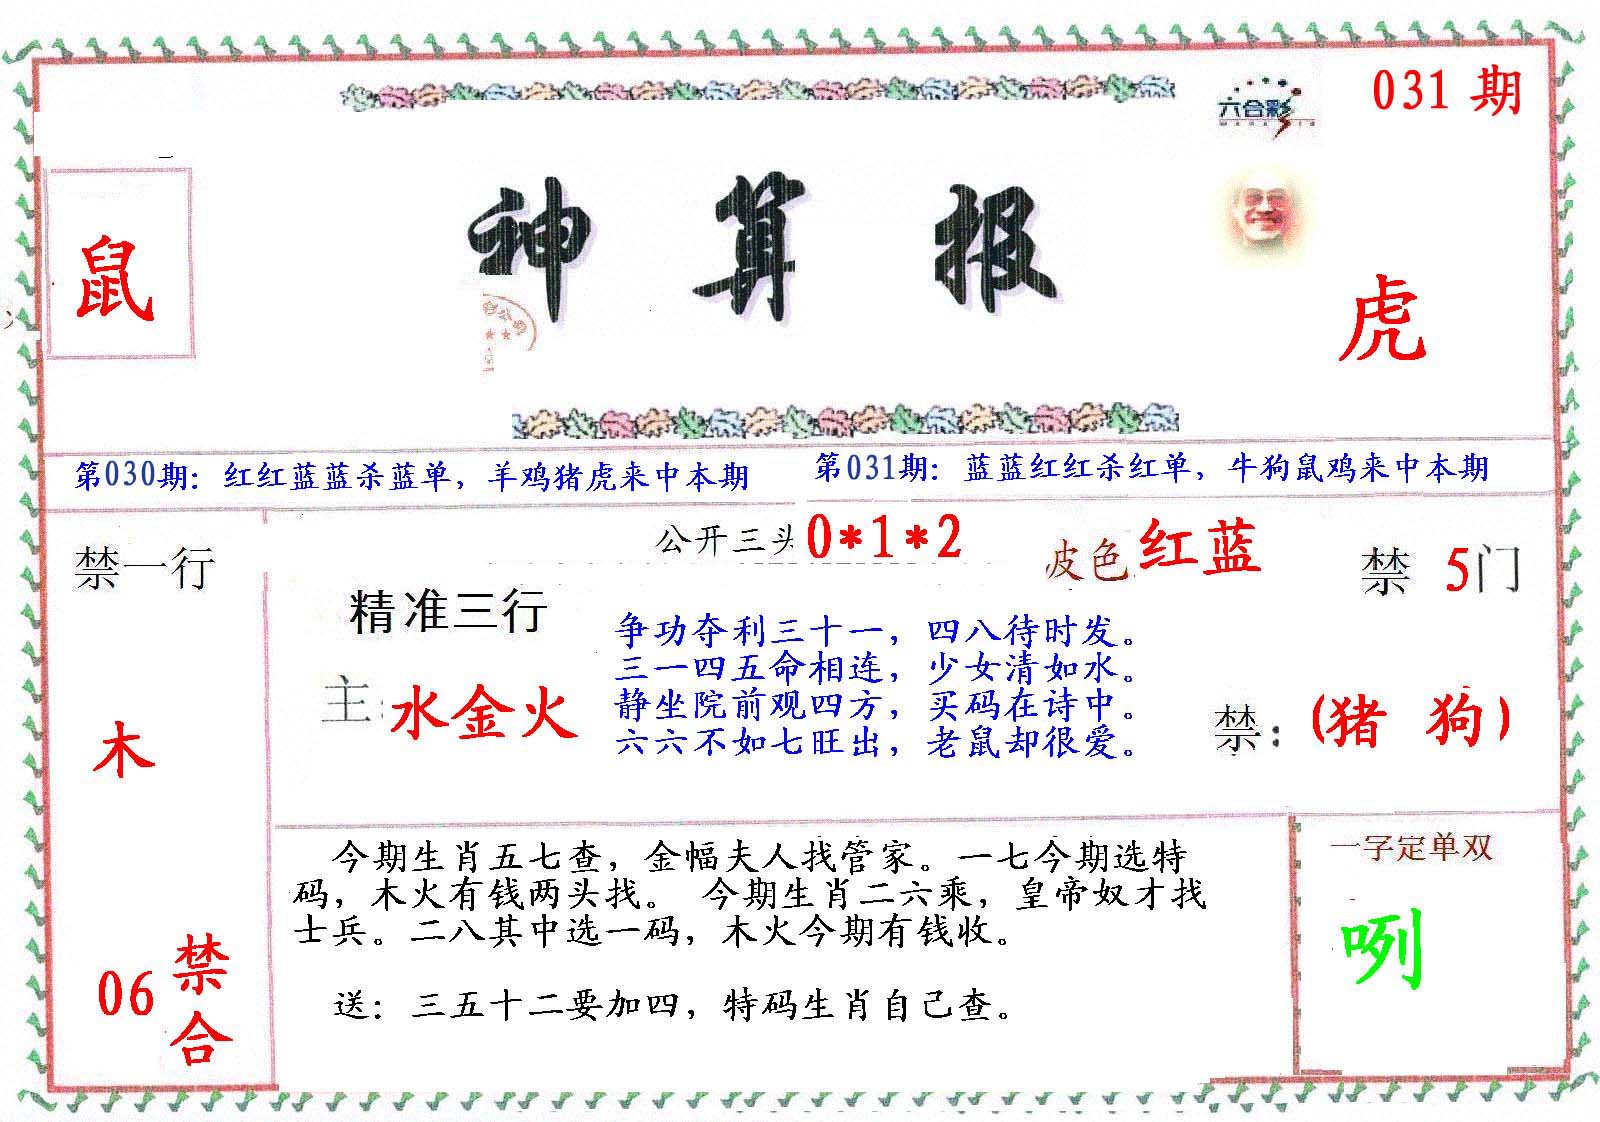 六合彩
031 期
神 算 报
鼠
虎
第030期：红红蓝蓝杀蓝单，羊鸡猪虎来中本期
第031期：蓝蓝红红杀红单，牛狗鼠鸡来中本期
禁一行
公开三头 0*1*2
皮色 红蓝
禁 5门
精准三行
主: 水金火
争功夺利三十一，四八待时发。
三一四五命相连，少女清如水。
静坐院前观四方，买码在诗中。
六六不如七旺出，老鼠却很爱。
禁: (猪 狗)
木
06 禁合
今期生肖五七查，金幅夫人找管家。一七今期选特
码，木火有钱两头找。 今期生肖二六乘，皇帝奴才找
士兵。二八其中选一码，木火今期有钱收。
送：三五十二要加四，特码生肖自己查。
一字定单双
咧